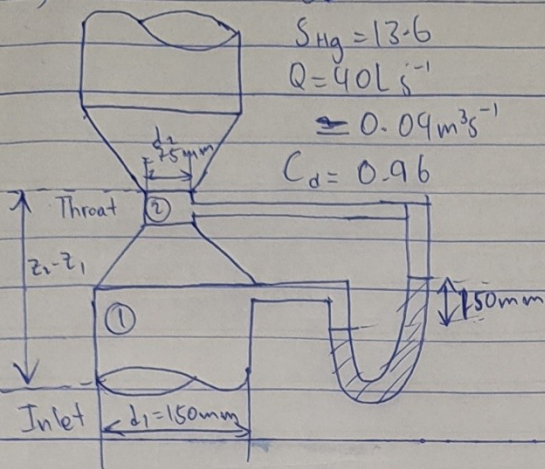 S_Hg = 13.6
Q = 40L s⁻¹
= 0.04m³s⁻¹
C_d = 0.96
d₂
75mm
Throat
②
z₂-z₁
150mm
①
Inlet
d₁=150mm